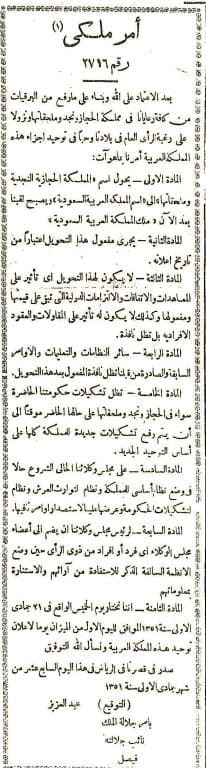 أمر ملكي (١)
رقم ٢٧١٦
بعد الاعتماد على الله وبناء على مارفع من البرقيات
من كافة رعايانا في مملكة الحجاز ونجد وملحقاتها ونزولا
على رغبة الرأى العام في بلادنا وحبا في توحيد اجزاء هذه
المملكة العربية أمرنا بما هو آت :
المادة الاولى – يحول اسم «المملكة الحجازية النجدية
وملحقاتها» الى اسم «المملكة العربية السعودية» ويصبح لقبنا
بعد الآن «ملك المملكة العربية السعودية»
المادة الثانية – يجرى مفعول هذا التحويل اعتبارا من
تاريخ اعلانه .
المادة الثالثة – لا يكون لهذا التحويل اى تأثير على
المعاهدات والاتفاقات والالتزامات الدولية التى تبقى على قيمتها
ومفعولها وكذلك لا يكون له تأثير على المقاولات والعقود
الافرادية بل تظل نافذة .
المادة الرابعة – سائر النظامات والتعليمات والاوامر
السابقة والصادرة من قبلنا تظل نافذة المفعول بعد هذا التحويل .
المادة الخامسة – تظل تشكيلات حكومتنا الحاضرة
سواء فى الحجاز ونجد وملحقاتها على حالها الحاضر موقتاً الى
أن يتم وضع تشكيلات جديدة للمملكة كلها على
أساس التوحيد الجديد .
المادة السادسة – على مجلس وكلائنا الحالى الشروع حالا
فى وضع نظام أساسى للمملكة ونظام لتوارث العرش ونظام
لتشكيلات الحكومة وعرضها علينا لاستصدار اوامرنا فيها .
المادة السابعة – لرئيس مجلس وكلائنا ان يضم الى أعضاء
مجلس الوكلاء اى فرد أو افراد من ذوى الرأى حين وضع
الانظمة السالفة الذكر للاستفادة من آرائهم والاستنارة
بمعلوماتهم
المادة الثامنة – اننا نختار يوم الخميس الواقع فى ٢١ جمادى
الاولى سنة ١٣٥١ الموافق لليوم الاول من الميزان يوما لاعلان
توحيد هذه المملكة العربية ونسأل الله التوفيق
صدر فى قصرنا فى الرياض فى هذا اليوم السابع عشر من
شهر جمادى الاولى سنة ١٣٥١
( التوقيع ) عبد العزيز
بأمر جلالة الملك
نائب جلالته
فيصل